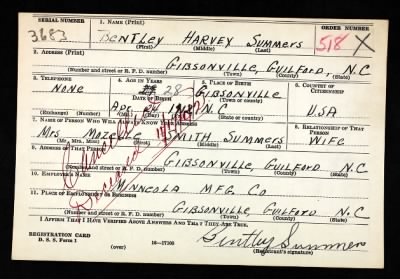 SERIAL NUMBER 1. NAME (Print) ORDER NUMBER
3683 BENTLEY HARVEY SUMMERS 518 X
(First) (Middle) (Last)
2. ADDRESS (Print)
GIBSONVILLE, GUILFORD, N.C
(Number and street or R. F. D. number) (Town) (County) (State)
3. TELEPHONE 4. AGE IN YEARS 5. PLACE OF BIRTH 6. COUNTRY OF CITIZENSHIP
NONE 28 GIBSONVILLE
DATE OF BIRTH (Town or county)
APR. N.C USA
(Exchange) (Number) (Mo.) (Day) (Yr.) (State or country)
7. NAME OF PERSON WHO WILL ALWAYS KNOW YOUR ADDRESS 8. RELATIONSHIP OF THAT PERSON
MRS SMITH SUMMERS WIFE
(Mr., Mrs., Miss) (First) (Middle) (Last)
9. ADDRESS OF THAT PERSON
GIBSONVILLE, GUILFORD N.C
(Number and street or R. F. D. number) (Town) (County) (State)
10. EMPLOYER'S NAME
MINNEOLA MFG. CO
11. PLACE OF EMPLOYMENT OR BUSINESS
GIBSONVILLE, GUILFORD N.C
(Number and street or R. F. D. number) (Town) (County) (State)
I AFFIRM THAT I HAVE VERIFIED ABOVE ANSWERS AND THAT THEY ARE TRUE.
Cancelled
Deceased
REGISTRATION CARD
D. S. S. Form 1 16—17105 Bentley Summers
(Registrant's signature)